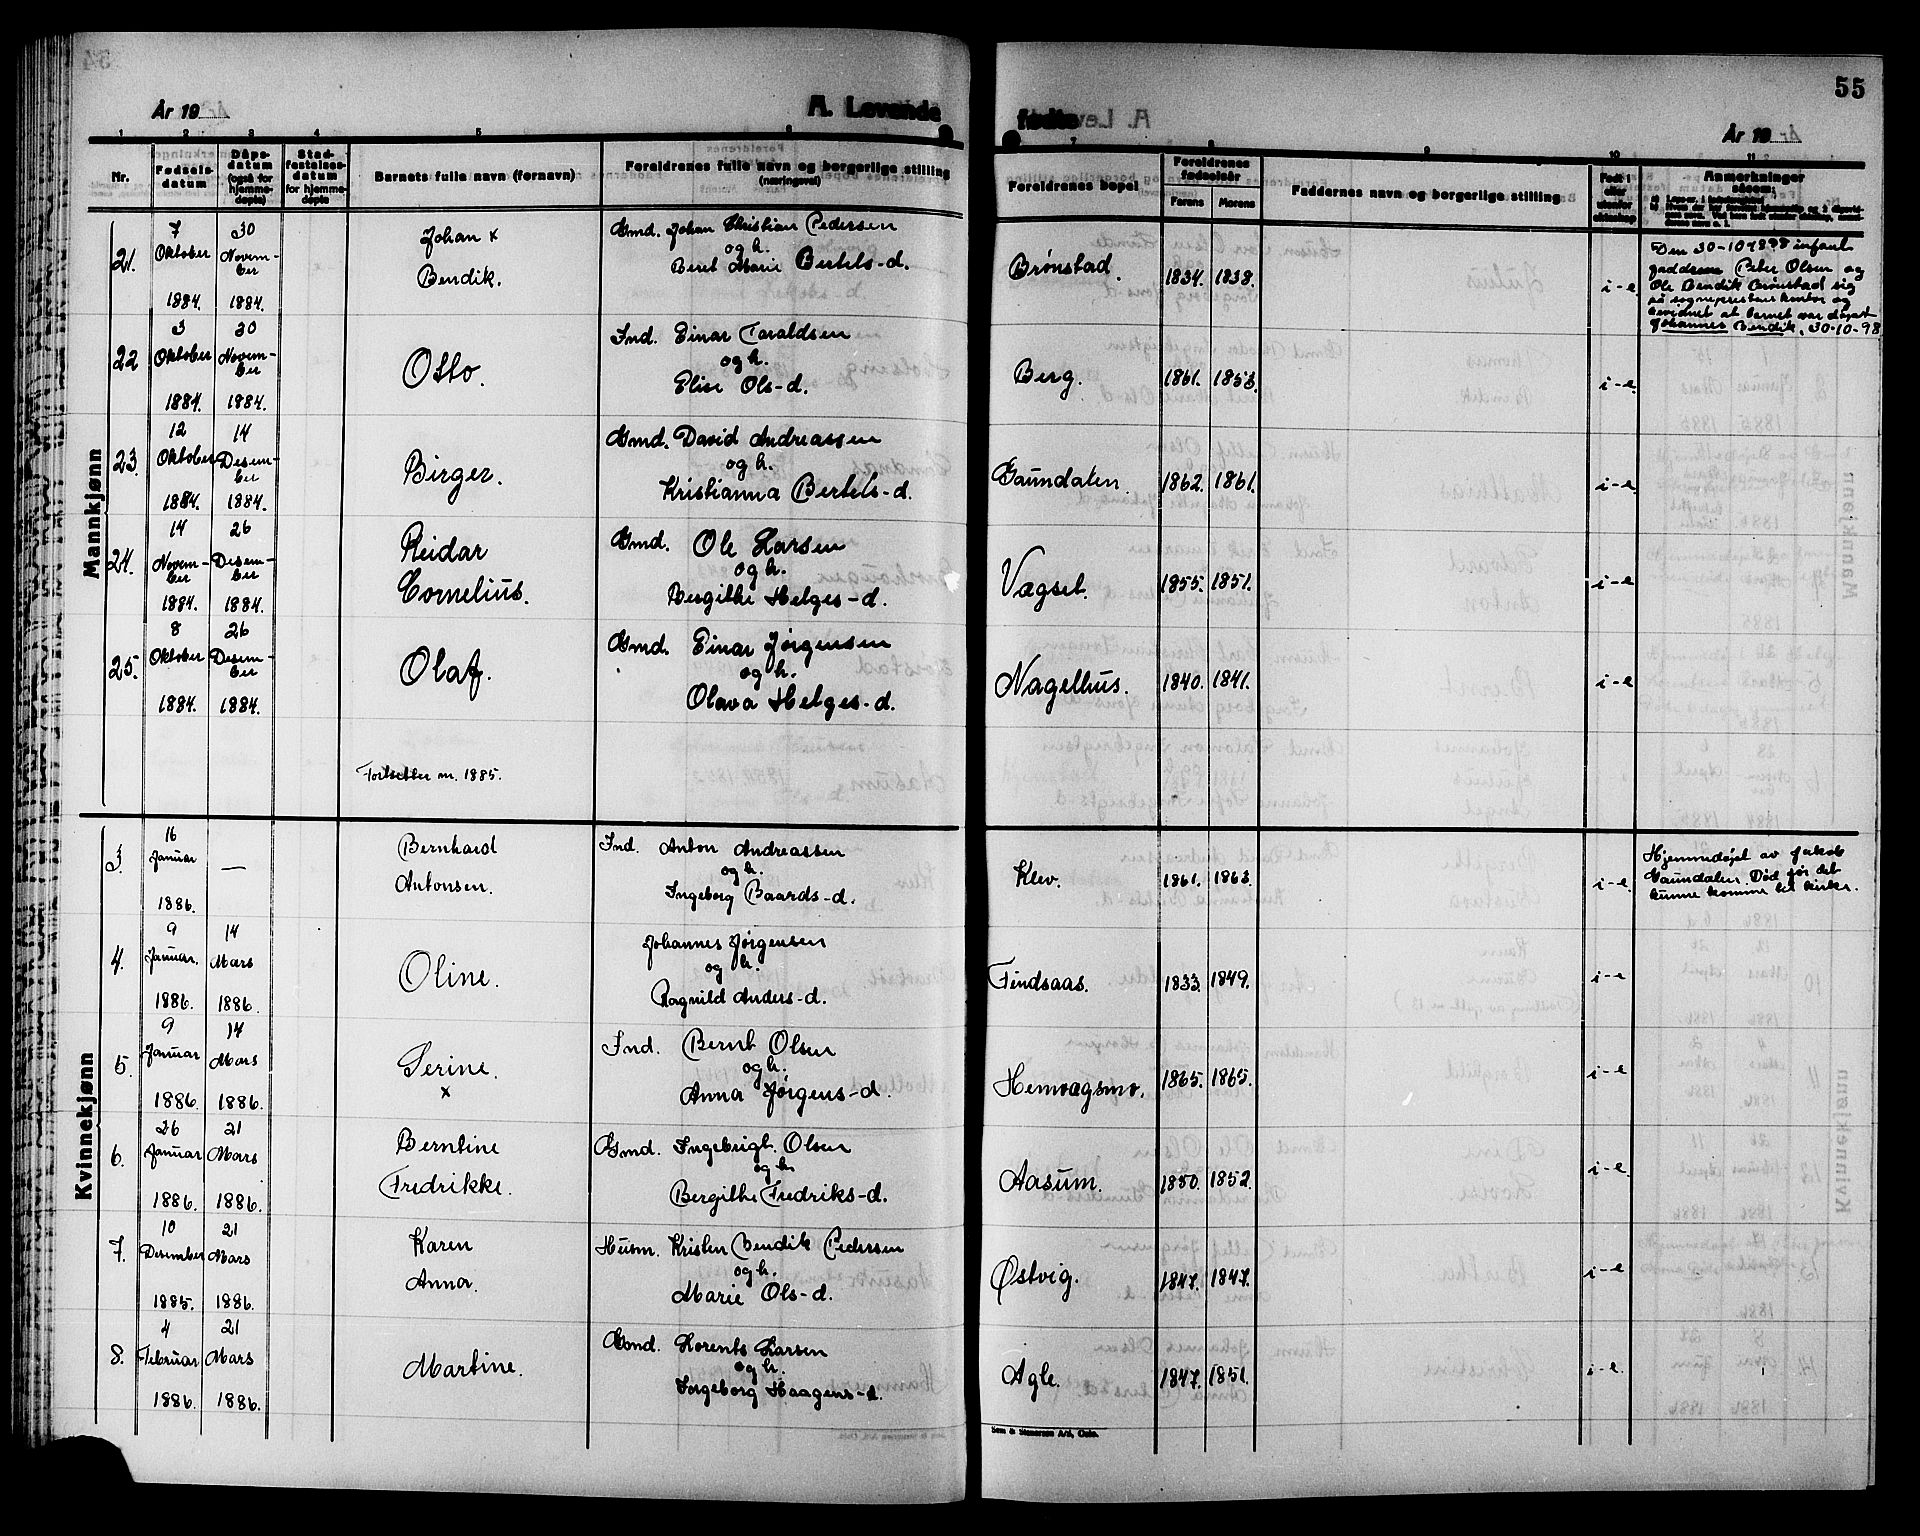 55
År 19
A. Levende
fødte
År 19
1 2 3 4 5 6 7 8 9 10 11
Nr.
Fødsels-
datum
Dåps-
datum
(også for
hjemme-
døpte)
Stad-
festelses-
datum
for hjemme-
døpte
Barnets fulle navn (fornavn)
Foreldrenes fulle navn og borgerlige stilling
(næringsvei)
Foreldrenes bopel
Foreldrenes
fødselsår
Farens Morens
Faddernes navn og borgerlige stilling
Født i
eller
utenfor
ekteskap
Anmerkninger
såsom:
Mannkjønn
21. 7 Oktober 1884. 30 Novem-ber 1884. Johan x Bendik. Gmd. Johan Christian Pedersen og h. Beret Marie Bertels-d. Brønstad. 1834. 1838. i-e
Den 30-10-1898 infant
faddrene Peter Olsen og
Ole Bendik Brønstad sig
på sogneprestens kontor og
bevidnet at barnet var døpt
Johannes Bendik. 30-10-98
22 3 Oktober 1884. 30 Novem-ber 1884. Otto. Ind. Einar Taraldsen og h. Elise Ols-d. Berg. 1861. 1853. i-e
23. 12 Oktober 1884. 14 Desem-ber 1884. Birger. Gmd. David Andreassen og h. Kristianna Bertels-d. Gaundalen. 1862. 1861. i-e
24. 14 Novem-ber 1884. 26 Desem-ber 1884. Reidar Cornelius. Gmd. Ole Larsen og h. Bergithe Helges-d. Vagset. 1855. 1851. i-e
25. 8 Oktober 1884. 26 Desem-ber 1884. Olaf. Gmd. Einar Jørgensen og h. Olava Helges-d. Nagelhus. 1840. 1841. i-e
Fortsetter m. 1885.
Kvinnekjønn
3. 16 Januar 1886. — Bernhard Antonsen. Ind. Anton Andreassen og h. Ingeborg Baards-d. Klev. 1861. 1863. i-e
Hjemmedøpt av Jakob
Gaundalen. Død før det
kunne komme til kirke.
4. 9 Januar. 1886. 14 Mars 1886. Oline. Johannes Jørgensen og h. Ragnild Anders-d. Findsaas. 1833. 1849. i-e
5. 9 Januar 1886. 14 Mars 1886. Serine. x Ind. Bernt Olsen og h. Anna Jørgens-d. Hemvagsmo. 1865. 1865. i-e
6. 26 Januar 1886. 21 Mars 1886. Berntine Fredrikke. Gmd. Ingebrigt. Olsen og h Bergithe Fredriks-d. Aasum. 1850. 1852. i-e
7. 10 Desember 1885. 21 Mars 1886. Karen Anna. Husm. Kristen Bendik Pedersen og h. Marie Ols-d. Østvig. 1847. 1847. i-e
8. 4 Februar 1886. 21 Mars 1886. Martine. Gmd. Lorents Larsen og h. Ingeborg Haagens-d. Agle. 1847. 1851. i-e
Sem & Stenersen A/S, Oslo.